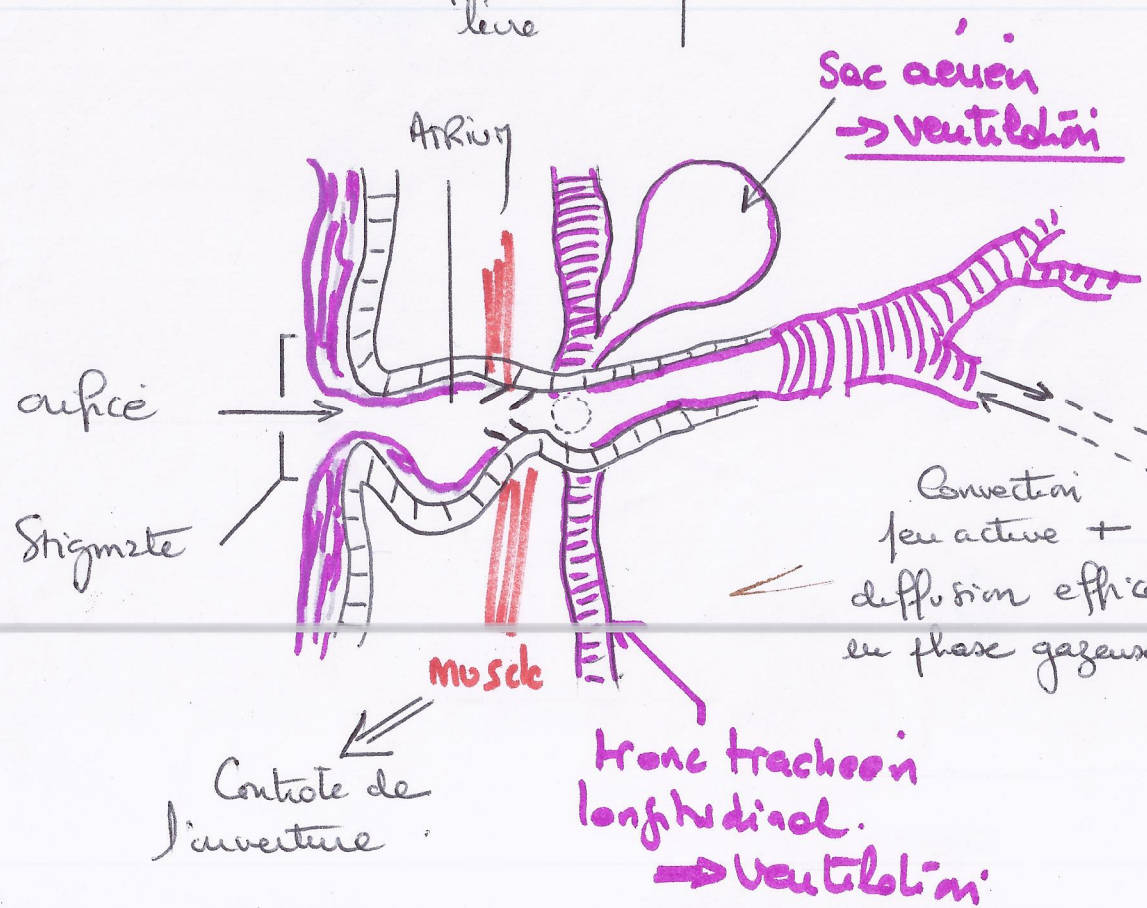 lèvre
Sac aérien
→ ventilation
ATRIUM
orifice
Stigmate
Convection
peu active +
diffusion effica
en phase gazeuse
Muscle
Controle de
l'ouverture.
tronc trachéen
longitudinal.
→ ventilation